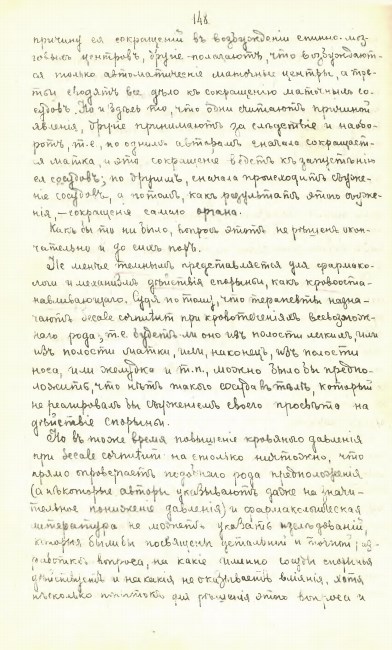 148
причину ея сокращеній въ возбужденіи спинно-моз-
говыхъ центровъ, другіе-полагаютъ, что возбуждают-
ся только автоматическіе маточные центры, а тре-
тьи сводятъ все дѣло къ сокращенію маточныхъ со-
судовъ. Но и здѣсь то, что одни считаютъ причиной
явленія, другіе принимаютъ за слѣдствіе и наобо-
ротъ, т.е. по однимъ авторамъ сначала сокращает-
ся матка, и это сокращеніе ведетъ къ запустѣнію
ея сосудовъ; по другимъ, сначала происходитъ съуже-
ніе сосудовъ, а потомъ, какъ результатъ этого съуже-
нія, — сокращенія самаго органа.
Какъ бы то ни было, вопросъ этотъ не рѣшенъ окон-
чательно и до сихъ поръ.
Не менѣе темнымъ представляется для фармако-
логіи и механизмъ дѣйствія спорыньи, какъ кровооста-
навливающаго. Судя по тому, что терапевты назна-
чаютъ secale cornutum при кровотеченіяхъ всевозмож-
наго рода, т.е. будетъ ли оно изъ полости легкихъ, или
изъ полости матки, или, наконецъ, изъ полости
носа, или желудка и т.п., можно было бы предпо-
ложить, что нѣтъ такого сосуда въ тѣлѣ, который
не реагировалъ бы съуженіемъ своего просвѣта на
дѣйствіе спорыньи.
Но въ тоже время повышеніе кровяного давленія
при secale cornutum на столько ничтожно, что
прямо опровергаетъ подобнаго рода предположенія
(а нѣкоторые авторы указываютъ даже на значи-
тельное пониженіе давленія) и фармакологическая
литература не можетъ указать изслѣдованій,
которыя были бы посвящены детальной и точной раз-
работкѣ вопроса, на какіе именно сосуды спорынья
дѣйствуетъ и на какія не оказываетъ вліянія, хотя
нѣсколько попытокъ для рѣшенія этого вопроса и